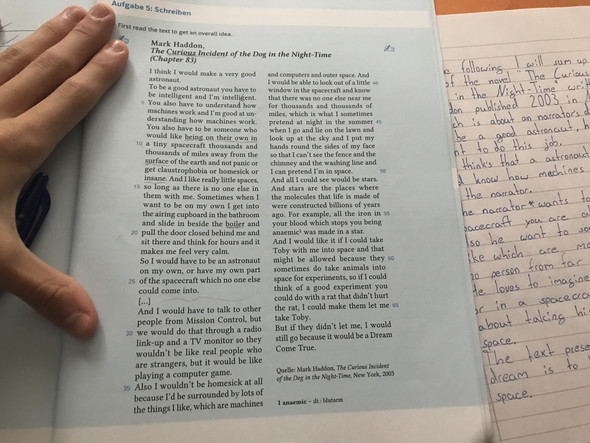 Aufgabe 5: Schreiben
First read the text to get an overall idea.
Mark Haddon,
The Curious Incident of the Dog in the Night-Time
(Chapter 83)
I think I would make a very good
astronaut.
To be a good astronaut you have to
be intelligent and I'm intelligent.
5 You also have to understand how
machines work and I'm good at un-
derstanding how machines work.
You also have to be someone who
would like being on their own in
10 a tiny spacecraft thousands and
thousands of miles away from the
surface of the earth and not panic or
get claustrophobia or homesick or
insane. And I like really little spaces,
15 so long as there is no one else in
them with me. Sometimes when I
want to be on my own I get into
the airing cupboard in the bathroom
and slide in beside the boiler and
20 pull the door closed behind me and
sit there and think for hours and it
makes me feel very calm.
So I would have to be an astronaut
on my own, or have my own part
25 of the spacecraft which no one else
could come into.
[...]
And I would have to talk to other
people from Mission Control, but
30 we would do that through a radio
link-up and a TV monitor so they
wouldn't be like real people who
are strangers, but it would be like
playing a computer game.
35 Also I wouldn't be homesick at all
because I'd be surrounded by lots of
the things I like, which are machines
and computers and outer space. And
I would be able to look out of a little 40
window in the spacecraft and know
that there was no one else near me
for thousands and thousands of
miles, which is what I sometimes
pretend at night in the summer 45
when I go and lie on the lawn and
look up at the sky and I put my
hands round the sides of my face
so that I can't see the fence and the
chimney and the washing line and 50
I can pretend I'm in space.
And all I could see would be stars.
And stars are the places where
the molecules that life is made of
were constructed billions of years
ago. For example, all the iron in 55
your blood which stops you being
anaemic¹ was made in a star.
And I would like it if I could take
Toby with me into space and that
might be allowed because they 60
sometimes do take animals into
space for experiments, so if I could
think of a good experiment you
could do with a rat that didn't hurt
the rat, I could make them let me 65
take Toby.
But if they didn't let me, I would
still go because it would be a Dream
Come True.
Quelle: Mark Haddon, The Curious Incident
of the Dog in the Night-Time, New York, 2003
1 anaemic – dt.: blutarm
following I will sum up
of the novel "The Curious
in the Night-Time
published 2003 in
is about an narrator's
be a good astronaut,
to do this job.
thinks that a astronaut
know how mechines
the narrator.
narrator wants to
spacecraft you are
so he want to
like which are
person from far
loves to imagine
or in a
about talking
space.
The text
dream is to
space.